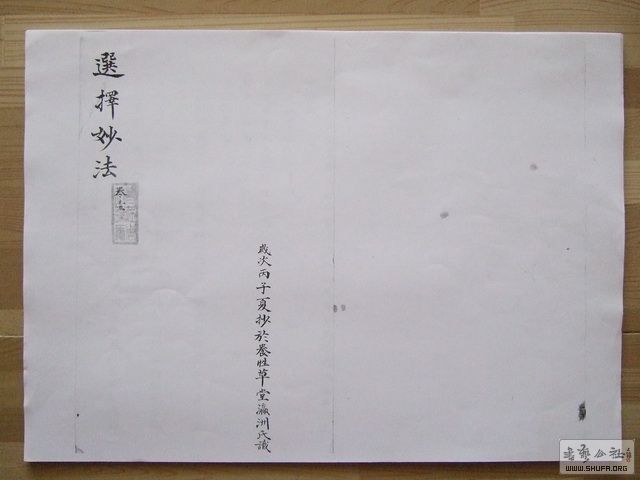 選擇妙法
歲次丙子夏抄於養性草堂瀛洲氏識
書藝公社
WWW.SHUFA.ORG